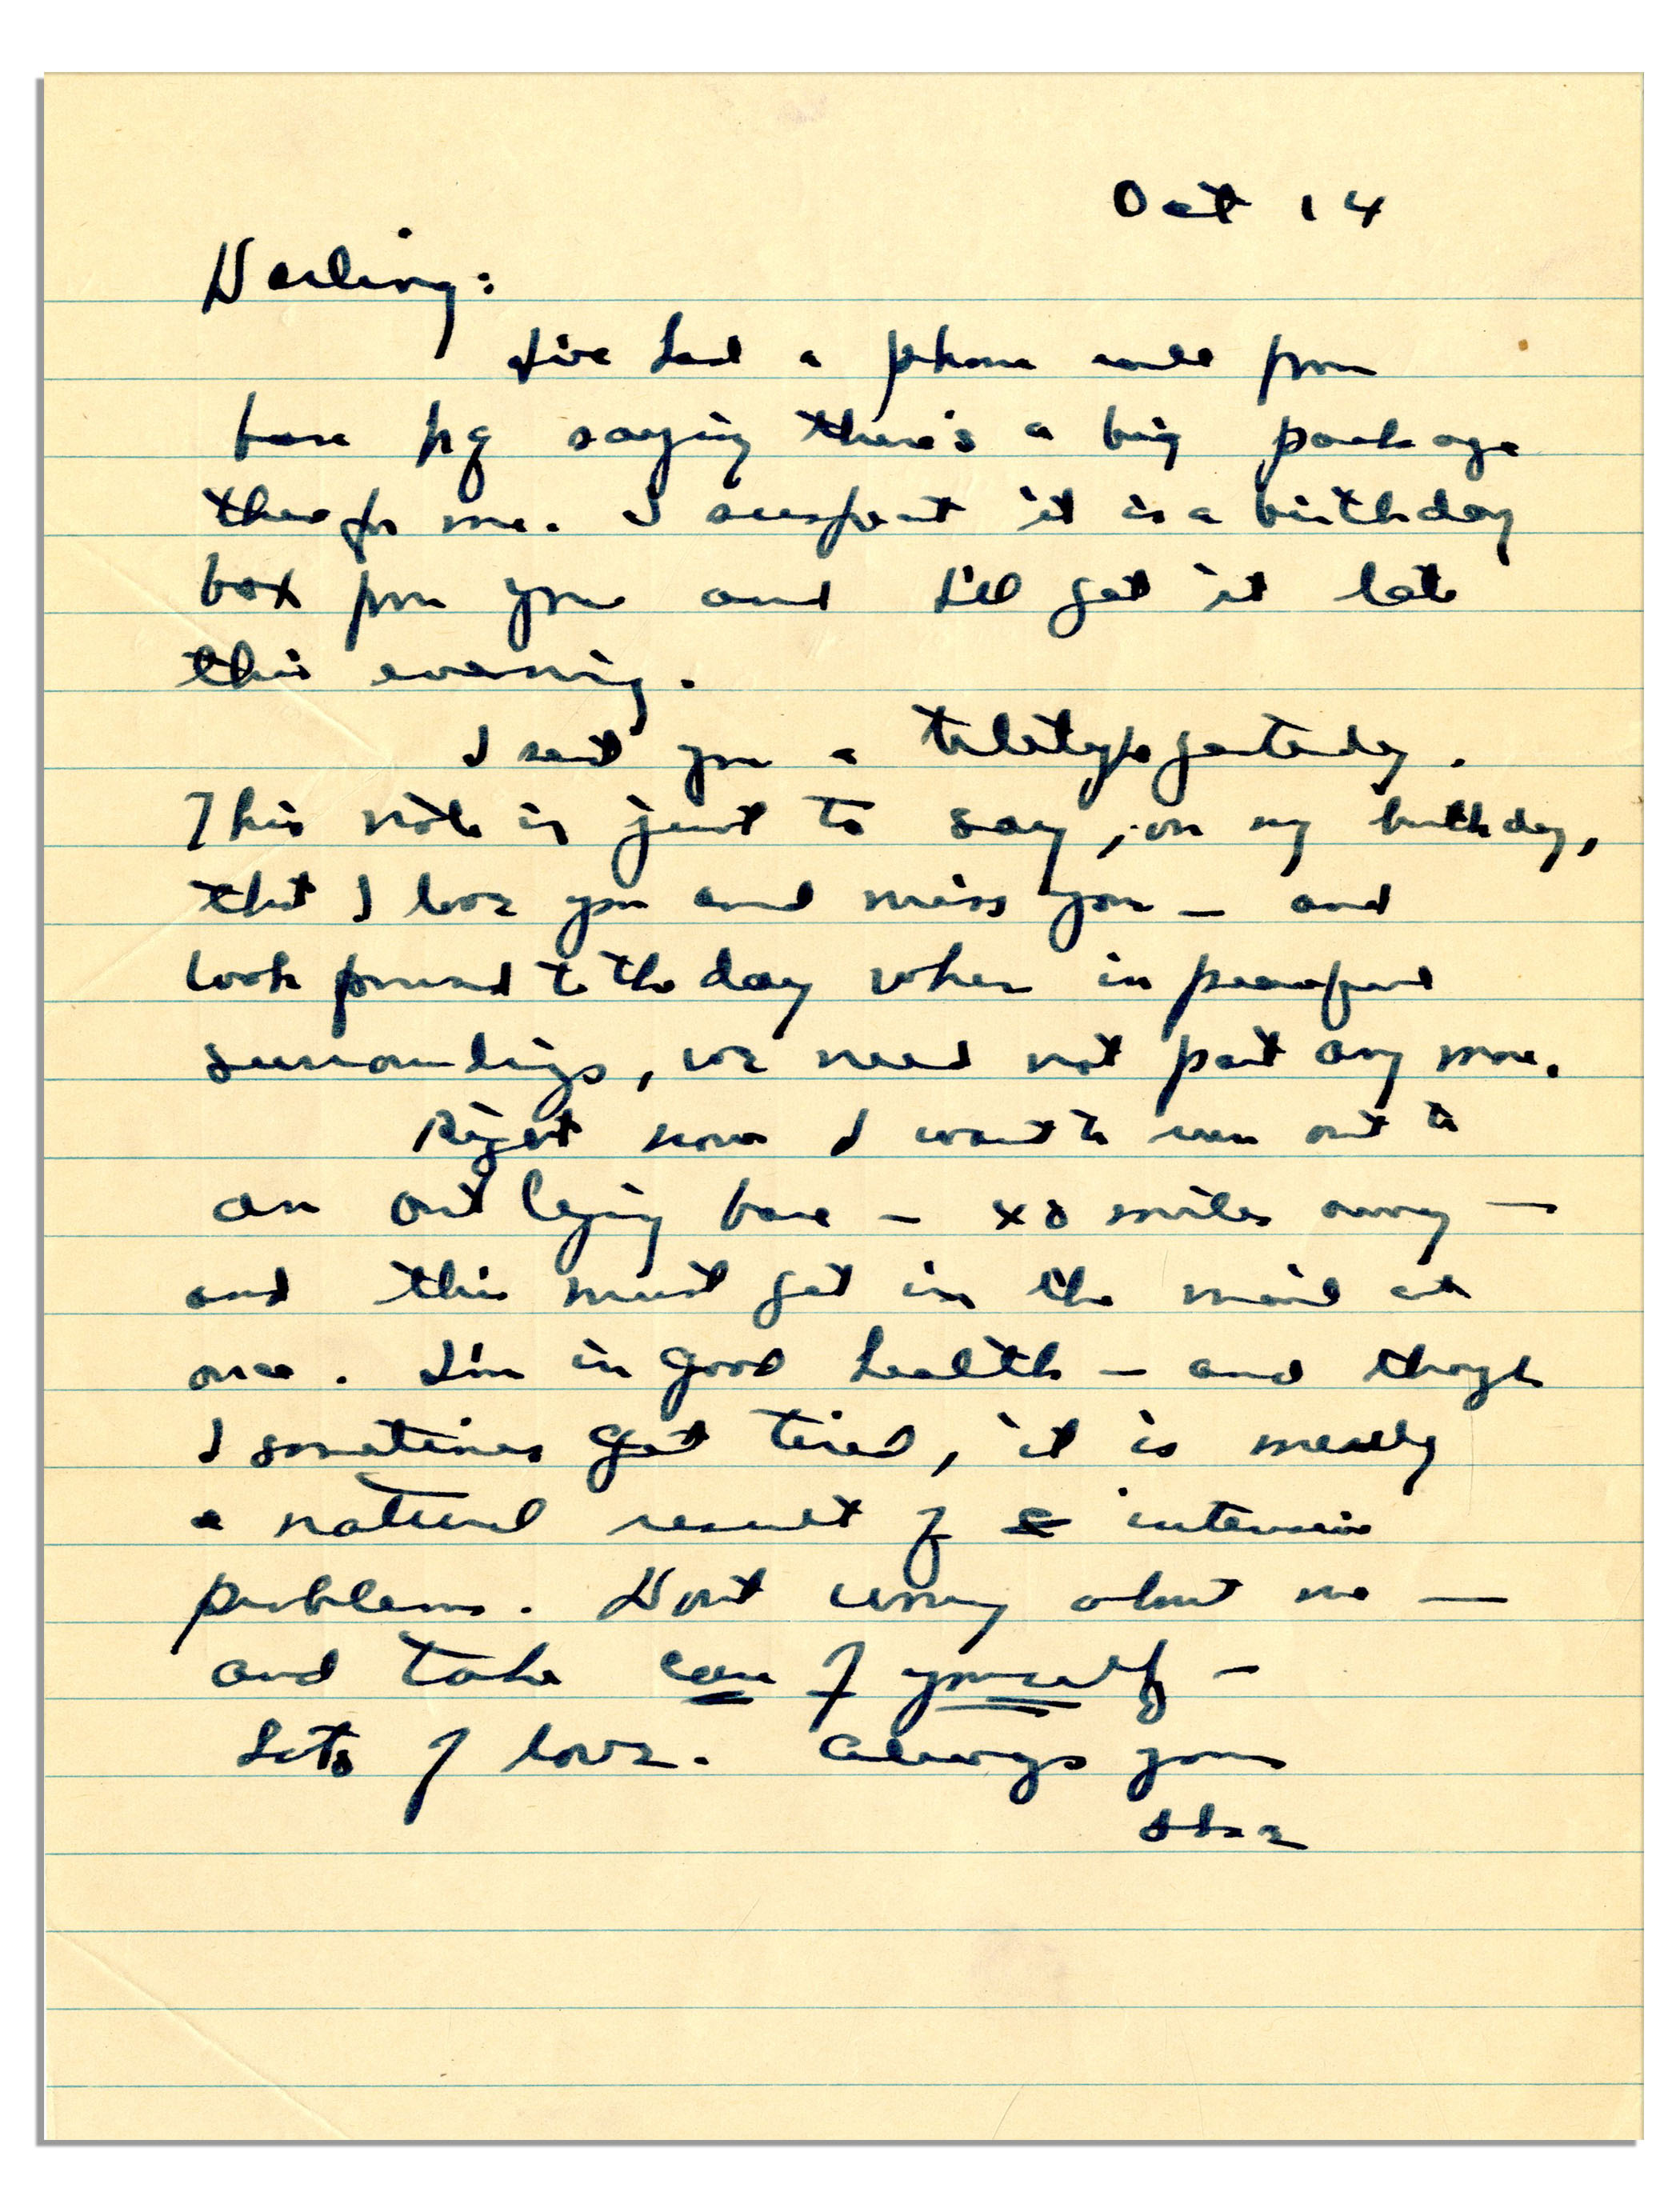 Oct 14
Darling:
I've had a phone call from
base hq saying there's a big package
there for me. I suspect it is a birthday
box from you and I'll get it late
this evening.
I sent you a teletype yesterday.
This note is just to say, on my birthday,
that I love you and miss you — and
look forward to the day when in peaceful
surroundings, we need not part any more.
Right now I want to run out to
an outlying base — miles away —
and this must get in the mail at
once. I'm in good health — and though
I sometimes get tired, it is merely
a natural result of intensive
problems. Don't worry about me —
and take care of yourself —
Lots of love. Always your
Ike